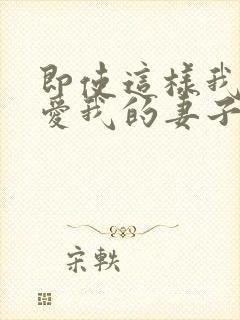 即使這樣我
愛我的妻子
宋軼